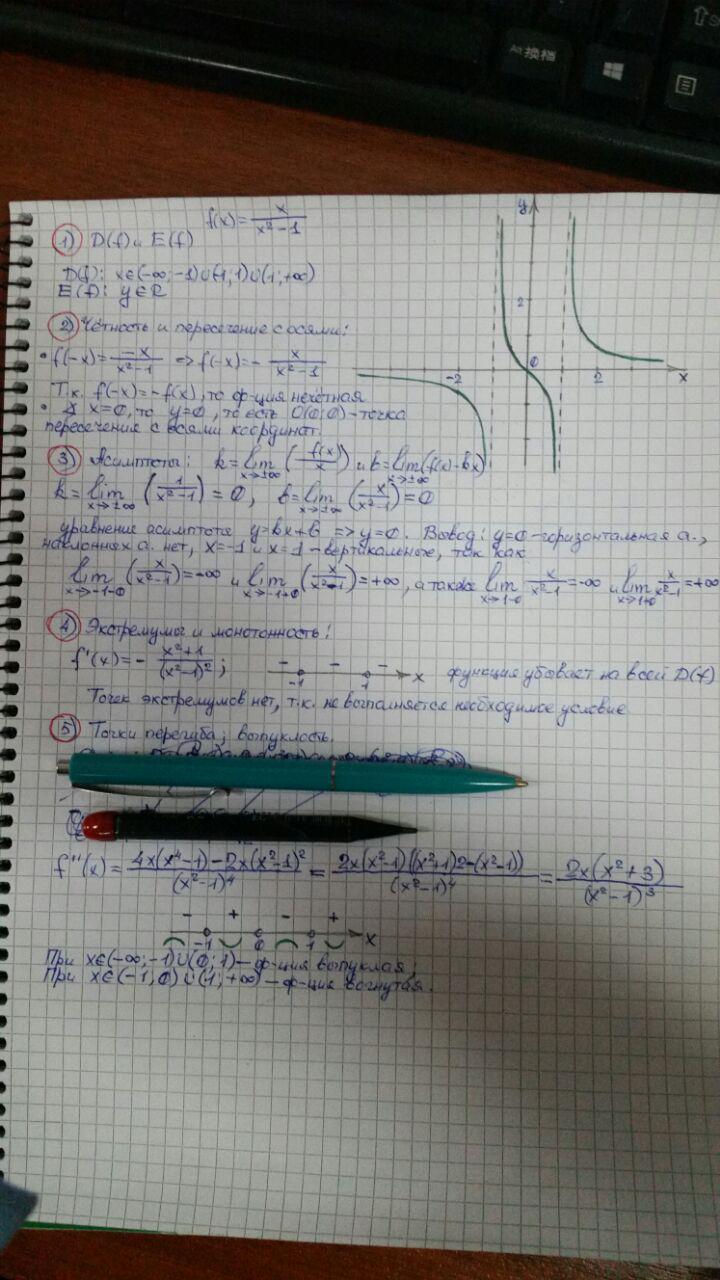 Aa换档
f(x) = x/(x²-1)
1) D(f) и E(f)
D(f): x∈(-∞;-1)∪(-1;1)∪(1;+∞)
E(f): y∈R
2) Чётность и пересечение с осями:
• f(-x) = -x/(x²-1) => f(-x) = - x/(x²-1)
Т.к. f(-x) = -f(x), то ф-ция нечётная
x=0, то y=0, то есть O(0;0) - точка
пересечения с осями координат.
y
2
0
-2
2
x
3) Асимптоты: k = lim x→±∞ (f(x)/x) и b = lim x→±∞ (f(x)-kx)
k = lim x→±∞ (1/(x²-1)) = 0, b = lim x→±∞ (x/(x²-1)) = 0
уравнение асимптоты y=kx+b => y=0. Вывод: y=0 - горизонтальная а.,
наклонных а. нет, x=-1 и x=1 - вертикальные, так как
lim x→-1-0 (x/(x²-1)) = -∞ и lim x→-1+0 (x/(x²-1)) = +∞, а также lim x→1-0 x/(x²-1) = -∞ и lim x→1+0 x/(x²-1) = +∞
4) Экстремумы и монотонность:
f'(x) = - (x²+1)/(x²-1)²; - -1 - 1 - x функция убывает на всей D(f)
Точек экстремумов нет, т.к. не выполняется необходимое условие
5) Точки перегиба; выпуклость.
f''(x) = (4x(x⁴-1)-2x(x²-1)²)/(x²-1)⁴ = (2x(x²-1)((x²+1)2-(x²-1)))/(x²-1)⁴ = (2x(x²+3))/(x²-1)³
- + - +
-1 0 1 x
При x∈(-∞;-1)∪(0;1) - ф-ция выпуклая;
При x∈(-1;0)∪(1;+∞) - ф-ция вогнутая.